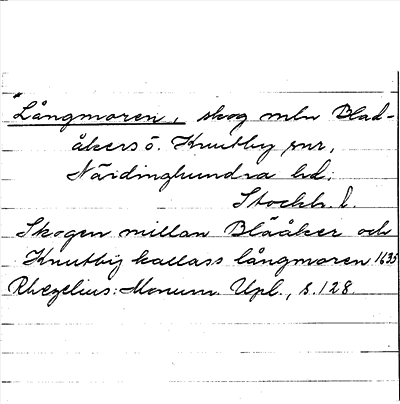 Långmoren, skog mln Blad-
åkers o. Knutby snr,
Närdinghundra hd;
Stockh. l.
Skogen millan Blååker och
Knutbij kallass långmoren 1635
Rhezelius: Monum. Upl., s. 128.